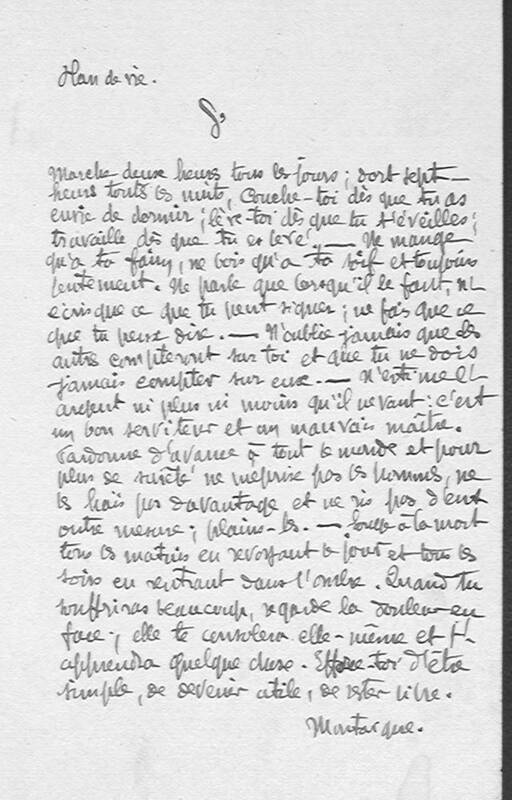 Plan de vie.
Marche deux heures tous les jours ; dors sept
heures toutes les nuits, couche-toi dès que tu as
envie de dormir ; lève-toi dès que tu t'éveilles ;
travaille dès que tu es levé. — Ne mange
qu'à ta faim, ne bois qu'à ta soif et toujours
lentement. Ne parle que lorsqu'il le faut, n'
écris que ce que tu peux signer ; ne fais que ce
que tu peux dire. — N'oublie jamais que les
autres compteront sur toi et que tu ne dois
jamais compter sur eux. — N'estime l'
argent ni plus ni moins qu'il ne vaut : c'est
un bon serviteur et un mauvais maître.
Pardonne d'avance à tout le monde et pour
plus de sûreté ne méprise pas les hommes, ne
les hais pas davantage et ne ris pas d'eux
outre mesure ; plains-les. — Songe à la mort
tous les matins en revoyant le jour et tous les
soirs en rentrant dans l'ombre. Quand tu
souffriras beaucoup, regarde la douleur en
face ; elle te consolera elle-même et t'
apprendra quelque chose. Efforce-toi d'être
simple, de devenir utile, de rester libre.